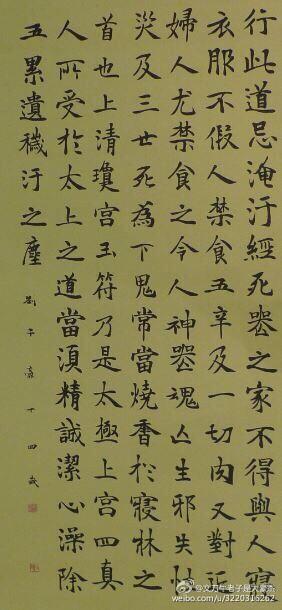 行此道忌淹汙經死喪之家不得與人寢
衣服不假人禁食五辛及一切肉又對近
婦人尤禁食之令人神喪魂亡生邪失性
災及三世死為下鬼常當燒香於寢牀之
首也上清瓊宮玉符乃是太極上宮四真
人所受於太上之道當須精誠潔心澡除
五累遺穢汙之塵
劉子豪十四歲
weibo.com/u/3220316262